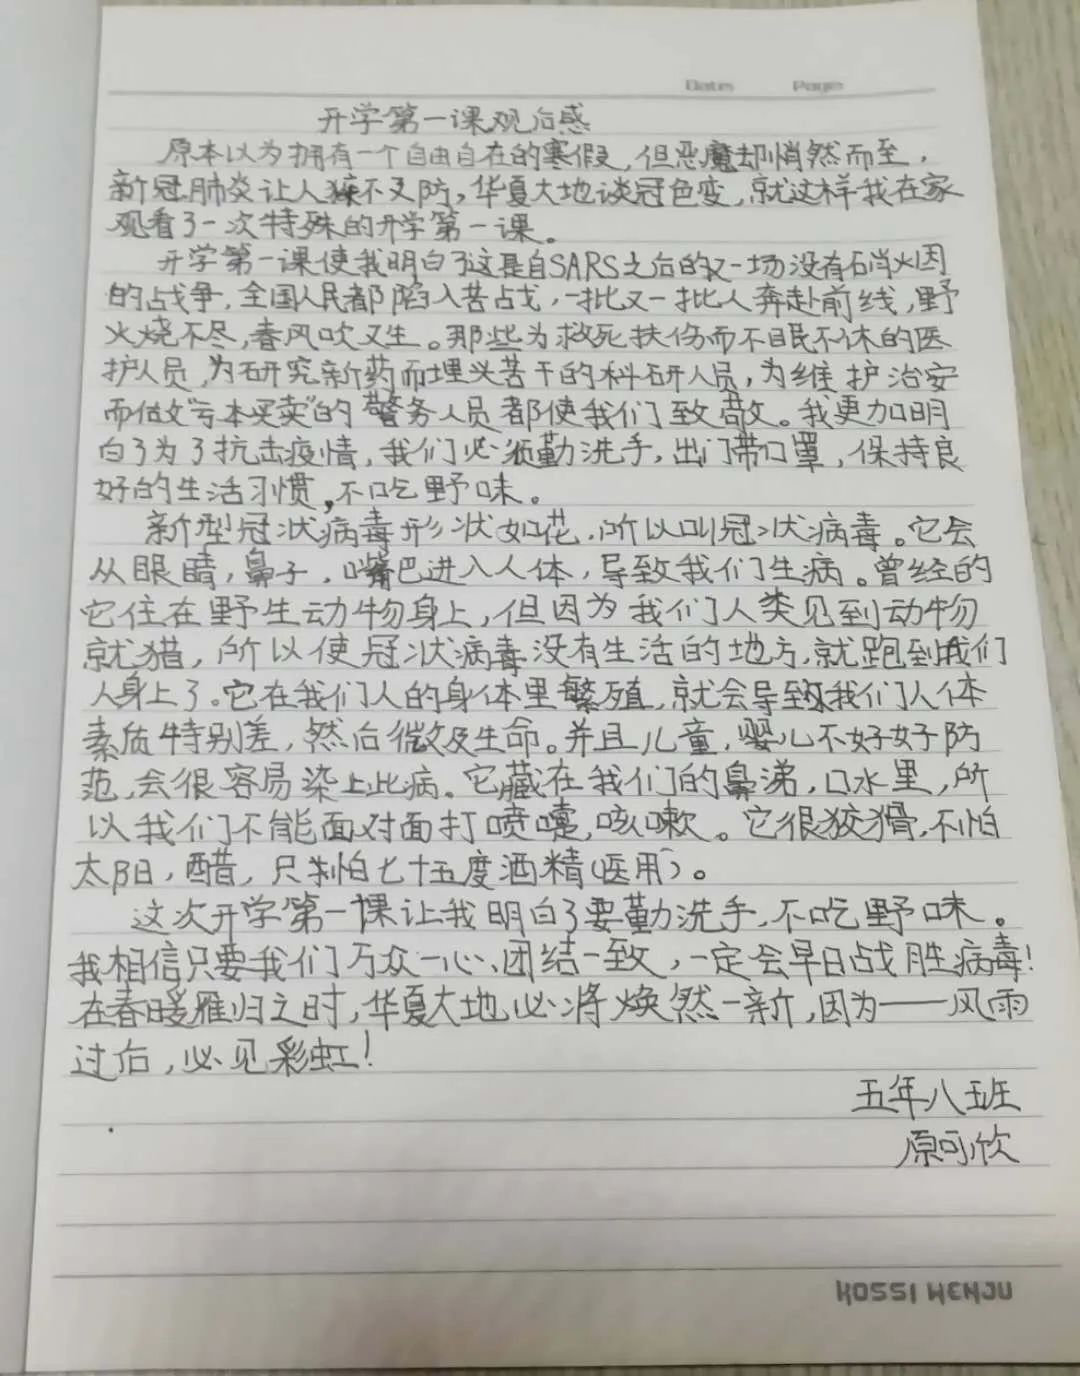 Date: Page
开学第一课观后感
原本以为拥有一个自由自在的寒假,但恶魔却悄然而至,
新冠肺炎让人猝不及防,华夏大地谈冠色变,就这样我在家
观看了一次特殊的开学第一课。
开学第一课使我明白了这是自SARS之后的又一场没有硝火因
的战争,全国人民都陷入苦战,一批又一批人奔赴前线,野
火烧不尽,春风吹又生。那些为救死扶伤而不眠不休的医
护人员,为研究新药而埋头苦干的科研人员,为维护治安
而做"亏本买卖"的警务人员都使我们致敬。我更加明
白了为了抗击疫情,我们必须勤洗手,出门带口罩,保持良
好的生活习惯,不吃野味。
新型冠状病毒形状如花,所以叫冠状病毒。它会
从眼睛,鼻子,嘴巴进入人体,导致我们生病。曾经的
它住在野生动物身上,但因为我们人类见到动物
就猎,所以使冠状病毒没有生活的地方,就跑到我们
人身上了。它在我们人的身体里繁殖,就会导致我们人体
素质特别差,然后微及生命。并且儿童,婴儿不好好防
范,会很容易染上此病。它藏在我们的鼻涕,口水里,所
以我们不能面对面打喷嚏,咳嗽。它很狡猾,不怕
太阳,醋,只怕七十五度酒精(医用)。
这次开学第一课让我明白了要勤洗手,不吃野味。
我相信只要我们万众一心、团结一致,一定会早日战胜病毒!
在春暖雁归之时,华夏大地必将焕然一新,因为——风雨
过后,必见彩虹!
五年八班
原可欣
KOSSI WENJU